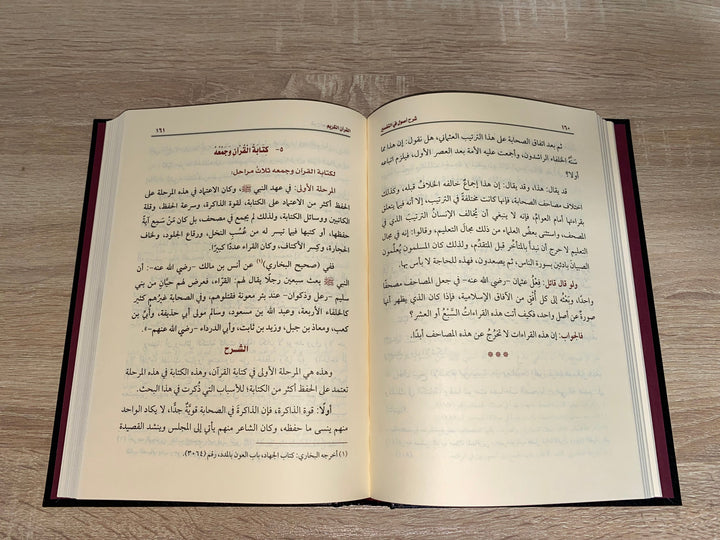 ١٦٠
شرح أصول في التفسير
ثم بعد اتفاق الصحابة على هذا الترتيب العثماني، هل نقول: إن هذا مما
سَنَّهُ الخلفاء الراشدون، وأجمعت عليه الأمة بعد العصر الأول، فيلزم اتباعه
أولا؟
قد يقال: هذا، وقد يقال: إن هذا إجماعٌ خالفه الخلافُ قبله، وكذلك
اختلاف مصاحف الصحابة، فإنها كانت مختلفةً في الترتيب، إلا أنه فيما يتعلق
بقراءتها أمام العوامِّ، فإنه لا ينبغي أن يُخالف الإنسانُ الترتيبَ الذي في
المصحف، واستثنى بعضُ العلماء من ذلك مجالَ التعليم، وقالوا: إنه في مجال
التعليم لا حرج أن نبدأ بالمتأخِّر قبل المتقدِّم، ولذلك كان المسلمون يُعلِّمون
الصبيانَ بادئين بسورة الناس، ثم يصعدون، فهذه للحاجة لا بأس بها.
ولو قال قائل: فِعْلُ عثمان -رضي الله عنه- في جعل المصاحف مصحفًا
واحدًا، وبَعْثُهُ إلى كل أُفُقٍ من الآفاق الإسلامية، فإذا كان الذي يظهر أنها
صورةٌ عن أصل واحد، فكيف أتت هذه القراءاتُ السَّبْعُ أو العشر؟
فالجواب: إن هذه القراءات لا تَخْرُجُ عن هذه المصاحف أبدًا.
***
القرآن الكريم
١٦١
٥- كِتَابَةُ القُرآن وَجَمْعُهُ
لكتابة القرآن وجمعه ثلاثُ مراحل:
المرحلة الأولى: في عهد النبي ﷺ، وكان الاعتماد في هذه المرحلة على
الحفظ أكثرَ من الاعتماد على الكتابة، لقوة الذاكرة، وسرعة الحفظ، وقلة
الكاتبين ووسائل الكتابة، ولذلك لم يجمع في مصحف، بل كان مَنْ سَمِع آيةً
حفظها، أو كتبها فيما تيسر له من عُسُبِ النخل، ورقاع الجلود، ولخاف
الحجارة، وكِسر الأكتاف، وكان القراء عددًا كبيرًا.
ففي (صحيح البخاري)(١) عن أنس بن مالك -رضي الله عنه-: أن
النبي ﷺ بعث سبعين رجلًا يقال لهم: القرّاء، فعرض لهم حيَّان من بني
سليم -رعل وذكوان- عند بئر معونة فقتلوهم، وفي الصحابة غيرُهم كثيرٌ
كالخلفاء الأربعة، وعبد الله بن مسعود، وسالم مولى أبي حذيفة، وأُبيِّ بن
كعب، ومعاذ بن جبل، وزيد بن ثابت، وأبي الدرداء -رضي الله عنهم-.
الشرح
وهذه هي المرحلة الأولى في كتابة القرآن، وهذه الكتابة في هذه المرحلة
تعتمد على الحفظ أكثر من الكتابة؛ للأسباب التي ذُكرت في هذا البحث.
أولًا: قوة الذاكرة، فإن الذاكرة في الصحابة قويَّةٌ جدًّا، لا يكاد الواحد
منهم ينسى ما حفظه، وكان الشاعر منهم يأتي إلى المجلس وينشد القصيدة
(١) أخرجه البخاري: كتاب الجهاد، باب العون بالمدد، رقم (٣٠٦٤).